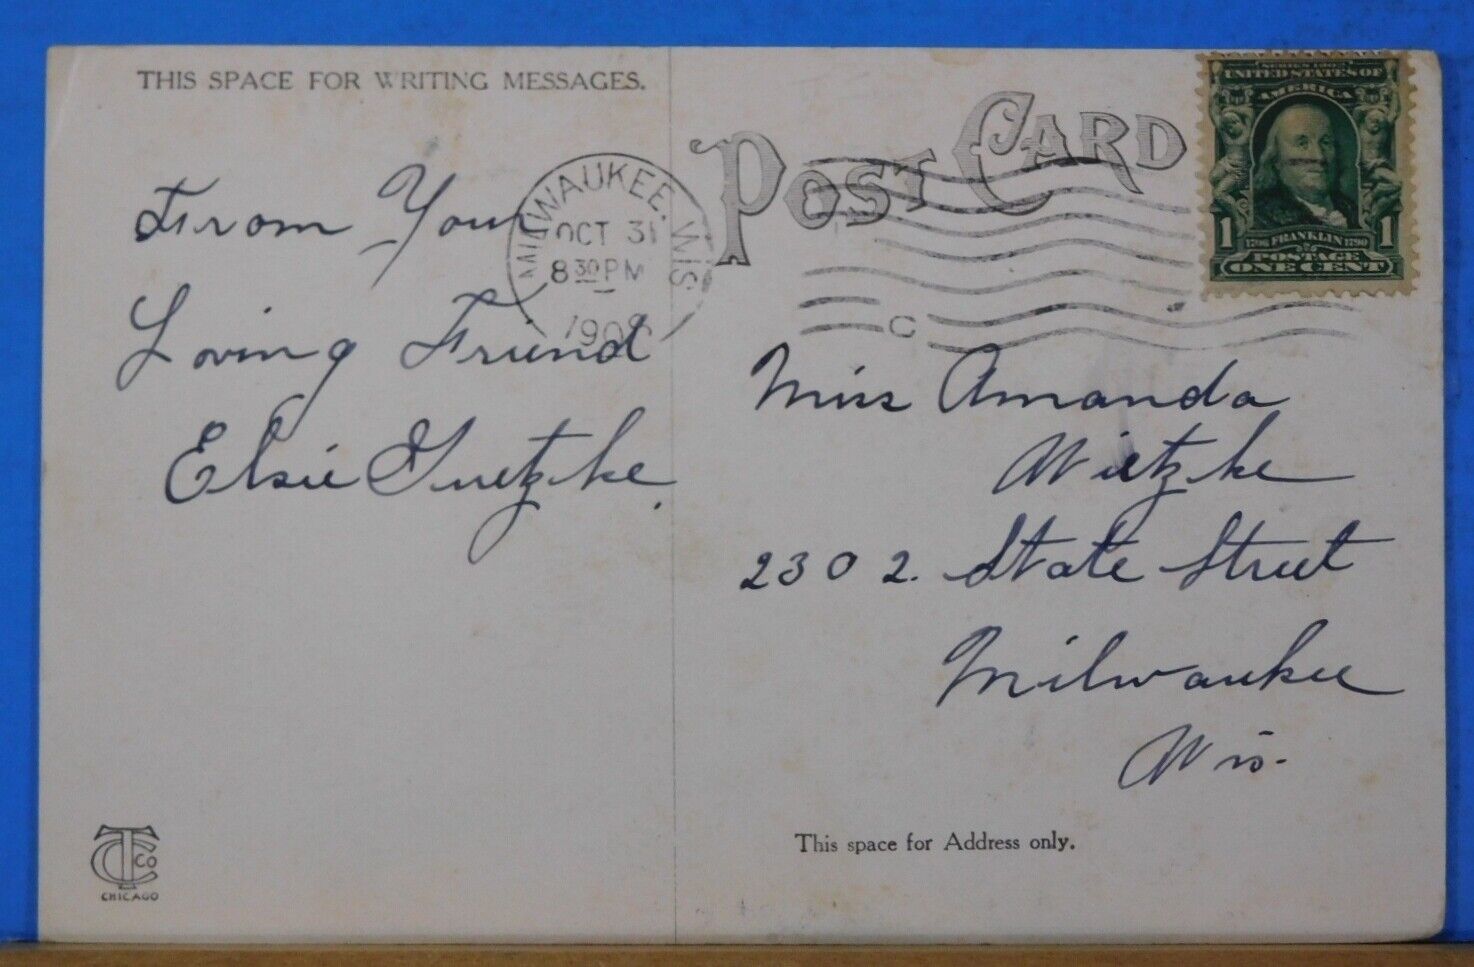 THIS SPACE FOR WRITING MESSAGES.
POST CARD
SERIES 1902
UNITED STATES OF
AMERICA
1 1706 FRANKLIN 1790 1
POSTAGE
ONE CENT
MILWAUKEE, WIS.
OCT 31
8 30 PM
C
From Your
Loving Friend
Elsie
Miss Amanda
Wietzke
2302. State Street
Milwaukee
Wis.
This space for Address only.
TC CO
CHICAGO